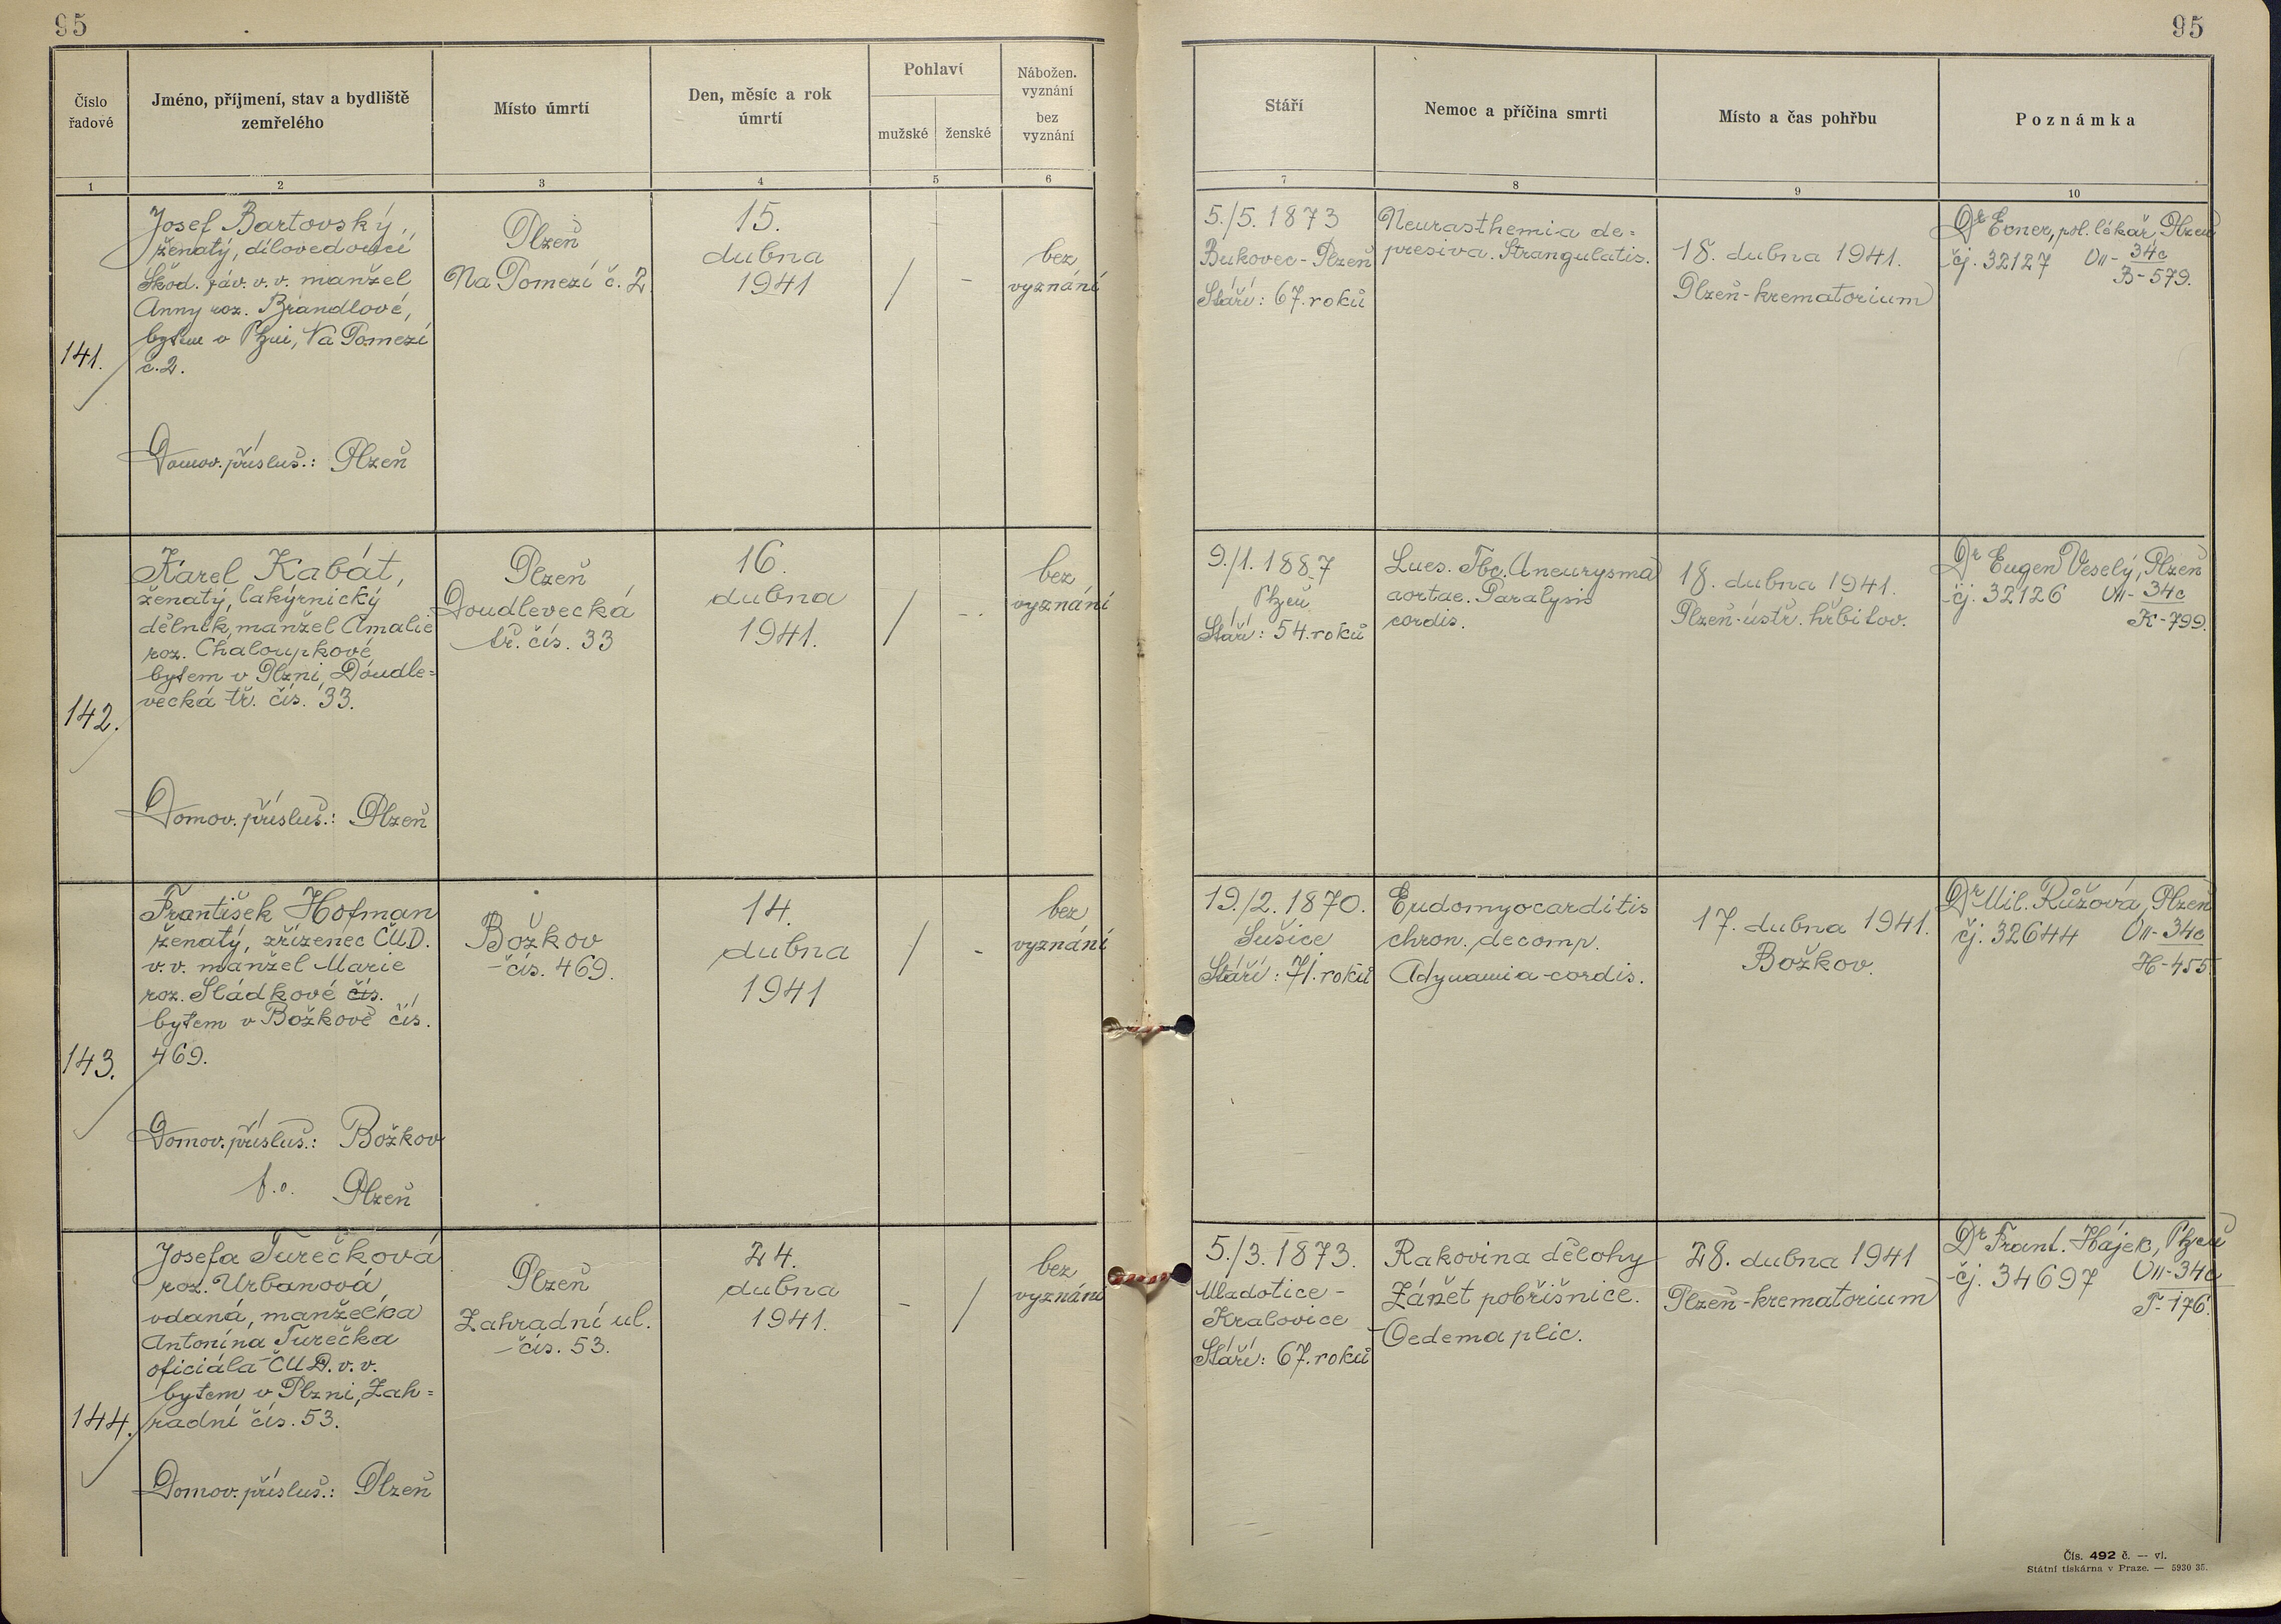 95
95
Číslo
řadové
Jméno, příjmení, stav a bydliště
zemřelého
Místo úmrtí
Den, měsíc a rok
úmrtí
Pohlaví
mužské
ženské
Nábožen.
vyznání
bez
vyznání
Stáří
Nemoc a příčina smrti
Místo a čas pohřbu
Poznámka
1
2
3
4
5
6
7
8
9
10
141.
Josef Bartovský,
ženatý, dílovedoucí
Škod. záv. v. v. manžel
Anny roz. Brandlové,
bytem v Plzni, Na Pomezí
č. 2.
Domov. přísluš.: Plzeň
Plzeň
Na Pomezí č. 2
15.
dubna
1941
/
-
bez
vyznání
5./5. 1873
Bukovec - Plzeň
Stáří: 67. roků
Neurasthemia de=
presiva. Strangulatis.
18. dubna 1941.
Plzeň - krematorium
Dr Ebner, pol. lékař Plzeň
čj. 32127 VII - 34c
B - 579.
142.
Karel Kabát,
ženatý, lakýrnický
dělník, manžel Amalie
roz. Chaloupkové
bytem v Plzni, Doudle=
vecká tř. čís. 33.
Domov. přísluš.: Plzeň
Plzeň
Doudlevecká
tř. čís. 33
16.
dubna
1941.
/
-
bez
vyznání
9./1. 1887
Plzeň
Stáří: 54. roků
Lues. Tbc. Aneurysma
aortae. Paralysis
cordis.
18. dubna 1941.
Plzeň - ústř. hřbitov.
Dr Eugen Veselý, Plzeň
čj. 32126 VII - 34c
K - 799.
143.
František Hofman
ženatý, zřízenec ČMD.
v. v. manžel Marie
roz. Sládkové čís.
bytem v Božkově čís.
469.
Domov. přísluš.: Božkov
f. o. Plzeň
Božkov
čís. 469.
14.
dubna
1941
/
-
bez
vyznání
19./2. 1870.
Sušice
Stáří: 71. roků
Endomyocarditis
chron. decomp.
Adynamia cordis.
17. dubna 1941.
Božkov.
Dr Mil. Růžová, Plzeň
čj. 32644 VII - 34c
H - 455
144.
Josefa Turečková
roz. Urbanová
vdaná, manželka
Antonína Turečka
oficiála ČMD. v. v.
bytem v Plzni, Zah=
radní čís. 53.
Domov. přísluš.: Plzeň
Plzeň
Zahradní ul.
čís. 53.
24.
dubna
1941.
-
/
bez
vyznání
5./3. 1873.
Mladotice -
Kralovice
Stáří: 67. roků
Rakovina dělohy
Zánět pobřišnice.
Oedema plic.
28. dubna 1941
Plzeň - krematorium
Dr Frant. Hájek, Plzeň
čj. 34697 VII - 34c
T - 176.
Čís. 492 č. — vl.
Státní tiskárna v Praze. — 5930 35.